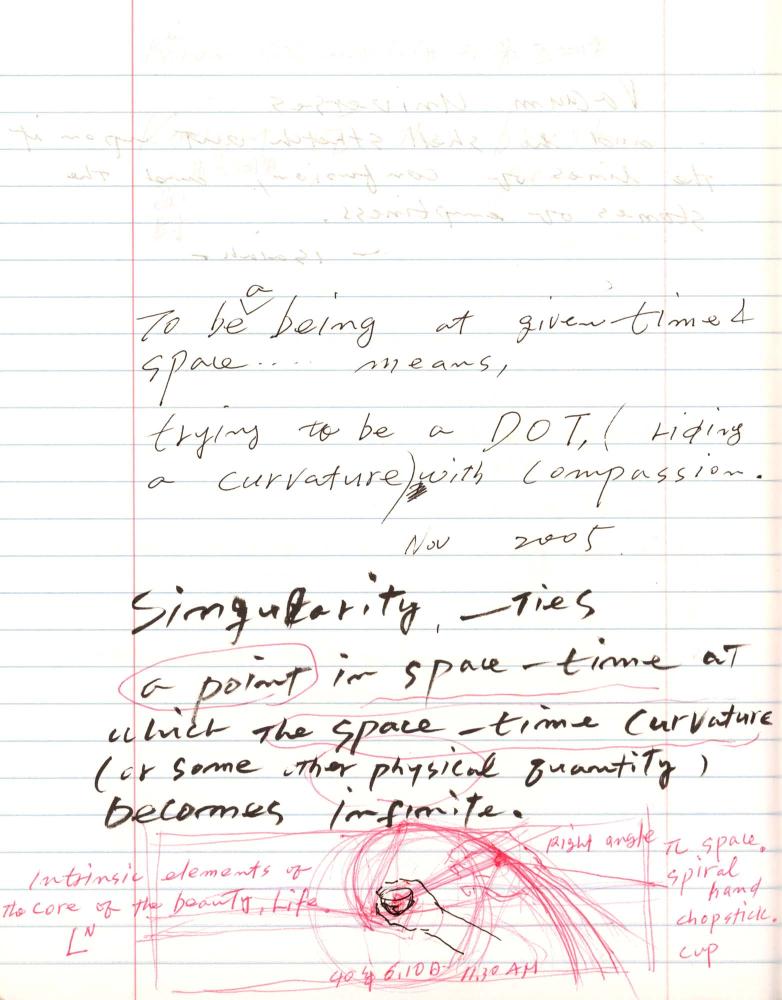 To be a being at given time &
space..... means,
trying to be a DOT, ( riding
a curvature) with Compassion.
Nov 2005.
Singularity, -ties
a point in space-time at
which the space-time curvature
(or some other physical quantity)
becomes infinite.
Right angle
π space.
spiral
hand
chopstick.
cup
Intrinsic elements of
the core of the beauty, Life.
L^N
11.30 AM